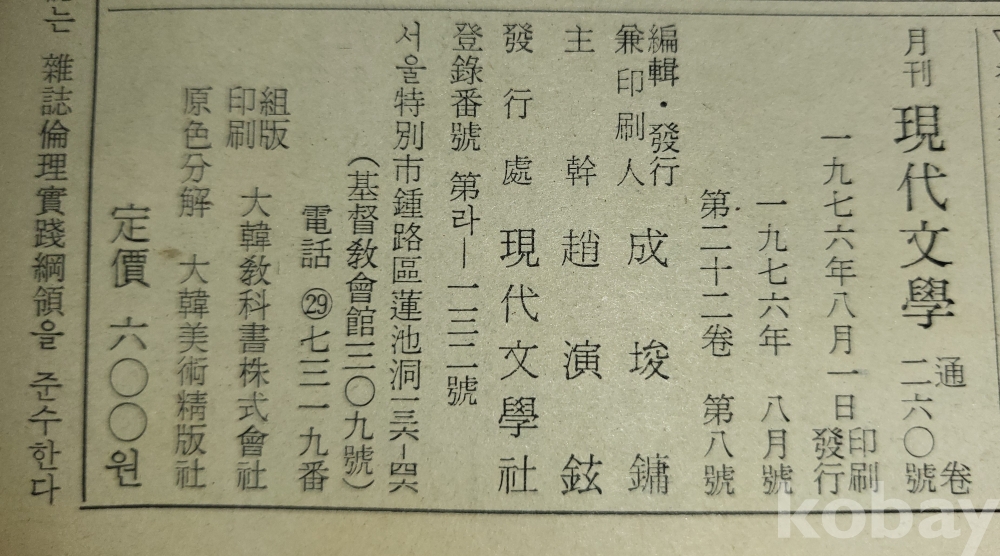 月刊 現代文學 通卷 二六〇號
一九七六年八月一日 印刷 發行
一九七六年 八月號
第二十二卷 第八號
編輯・發行
兼印刷人 成埈鏞
主幹 趙演鉉
發行處 現代文學社
登錄番號 第라—一三二號
서울特別市鍾路區蓮池洞一三六−四六
(基督敎會館三〇九號)
電話 ㉙七三一九番
組版
印刷 大韓敎科書株式會社
原色分解 大韓美術精版社
定價 六〇〇원
는 雜誌倫理實踐綱領을 준수한다
kobay